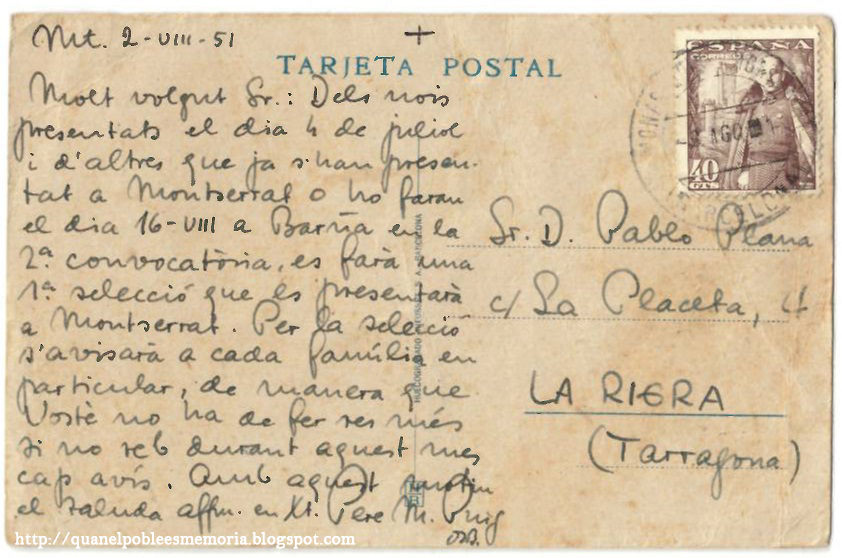 Mt. 2-VIII-51
+
TARJETA POSTAL
Molt volgut Sr.: Dels nois
presentats el dia 4 de juliol
i d'altres que ja s'han presen-
tat a Montserrat o ho faran
el dia 16-VIII a Barna en la
2ª convocatòria, es farà una
1ª selecció que es presentarà
a Montserrat. Per la selecció
s'avisarà a cada família en
particular, de manera que
Vostè no ha de fer res més
si no reb durant aquest mes
cap avís. Amb aquest motiu
el saluda affm. en Xt. Pere M. Puig
ESPAÑA
CORREOS
40
CTS
AGO
BARCELONA
Sr. D. Pablo Plana
c/ La Placeta, 4
LA RIERA
(Tarragona)
http://quanelpobleesmemoria.blogspot.com